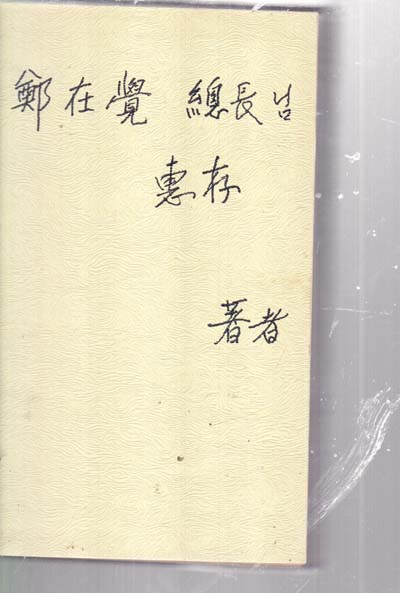 鄭在覺 總長님
惠存
著者